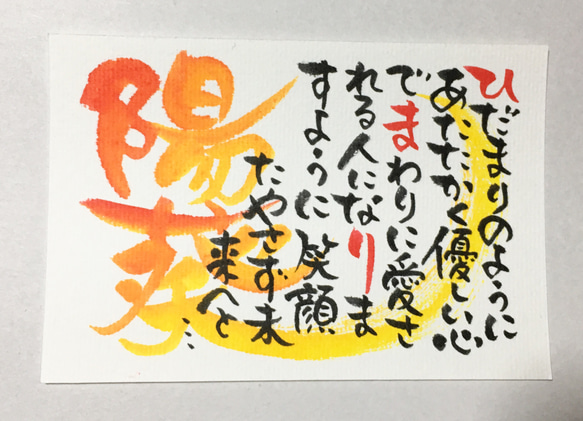 ひだまりのように
あたたかく優しい心
でまわりに愛さ
れる人になりま
すように笑顔
たやさず未
来へと…
陽